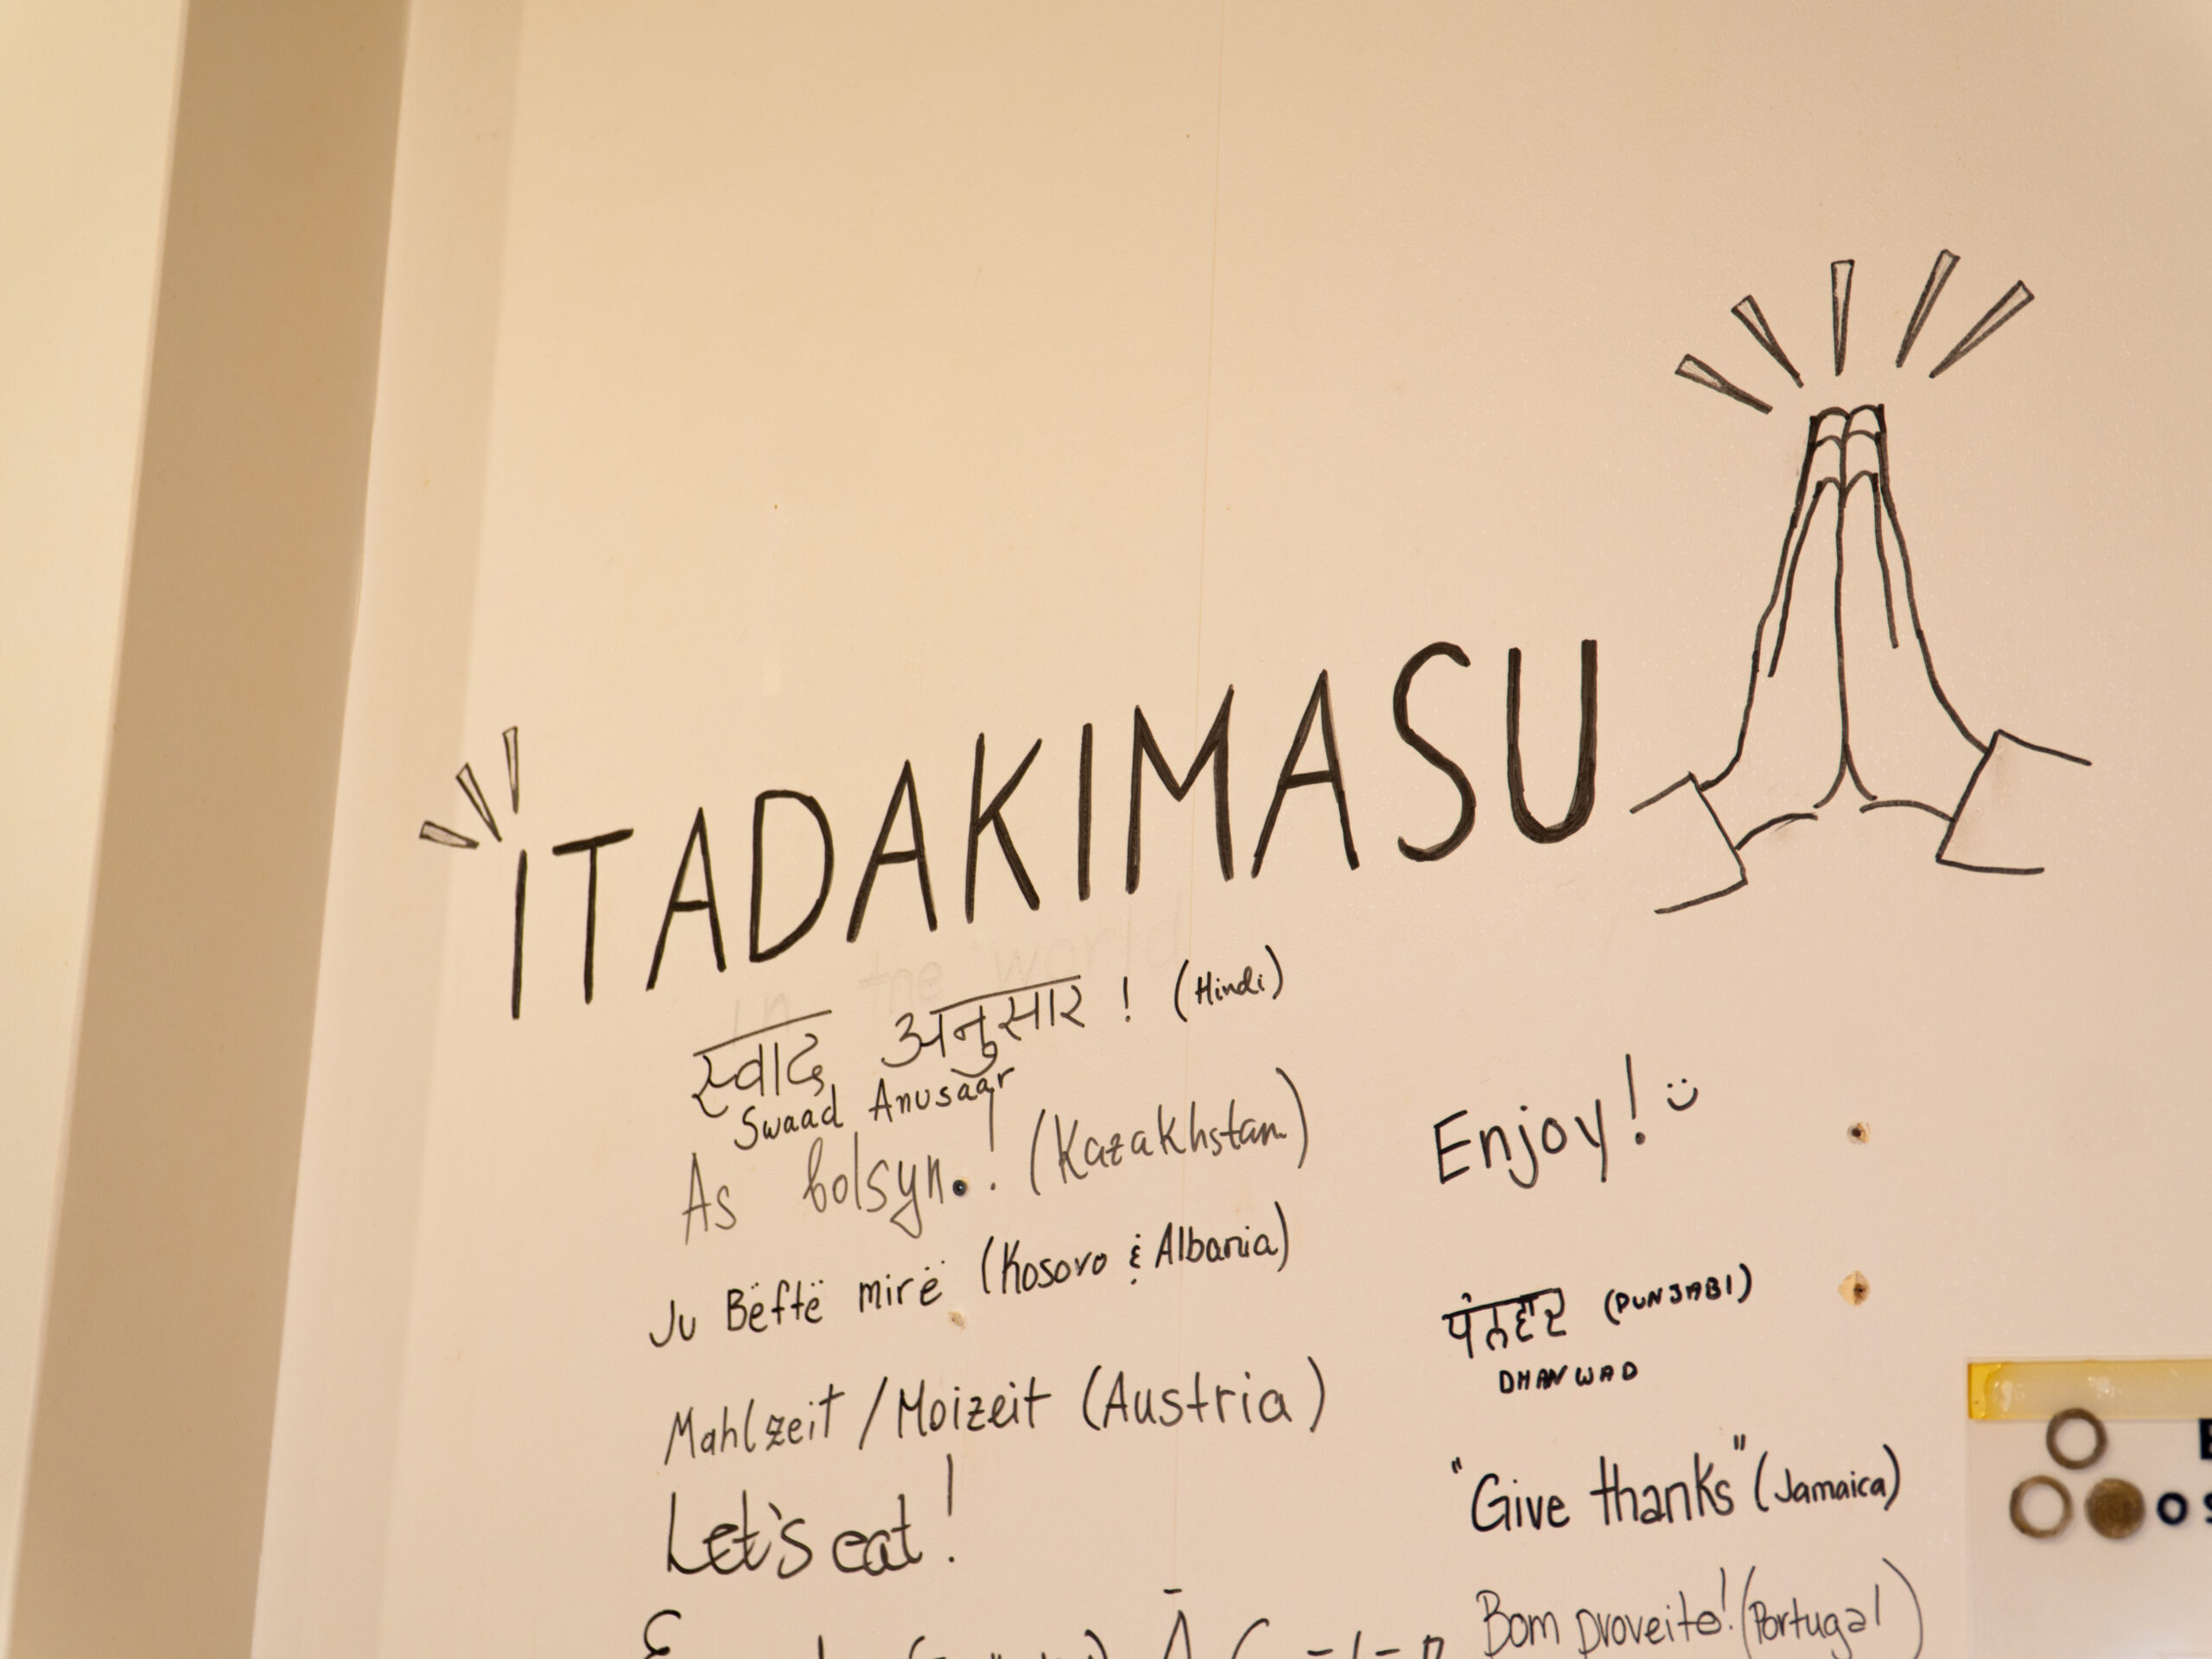 ITADAKIMASU
in the world
स्वाद अनुसार ! (Hindi)
Swaad Anusaar
As bolsyn..! (Kazakhstan)
Ju Bëftë mirë (Kosovo & Albania)
Mahlzeit / Moizeit (Austria)
Let's eat!
Enjoy! :)
ਧੰਨਵਾਦ (PUNJABI)
DHANWAD
"Give thanks" (Jamaica)
Bom proveito! (Portugal)